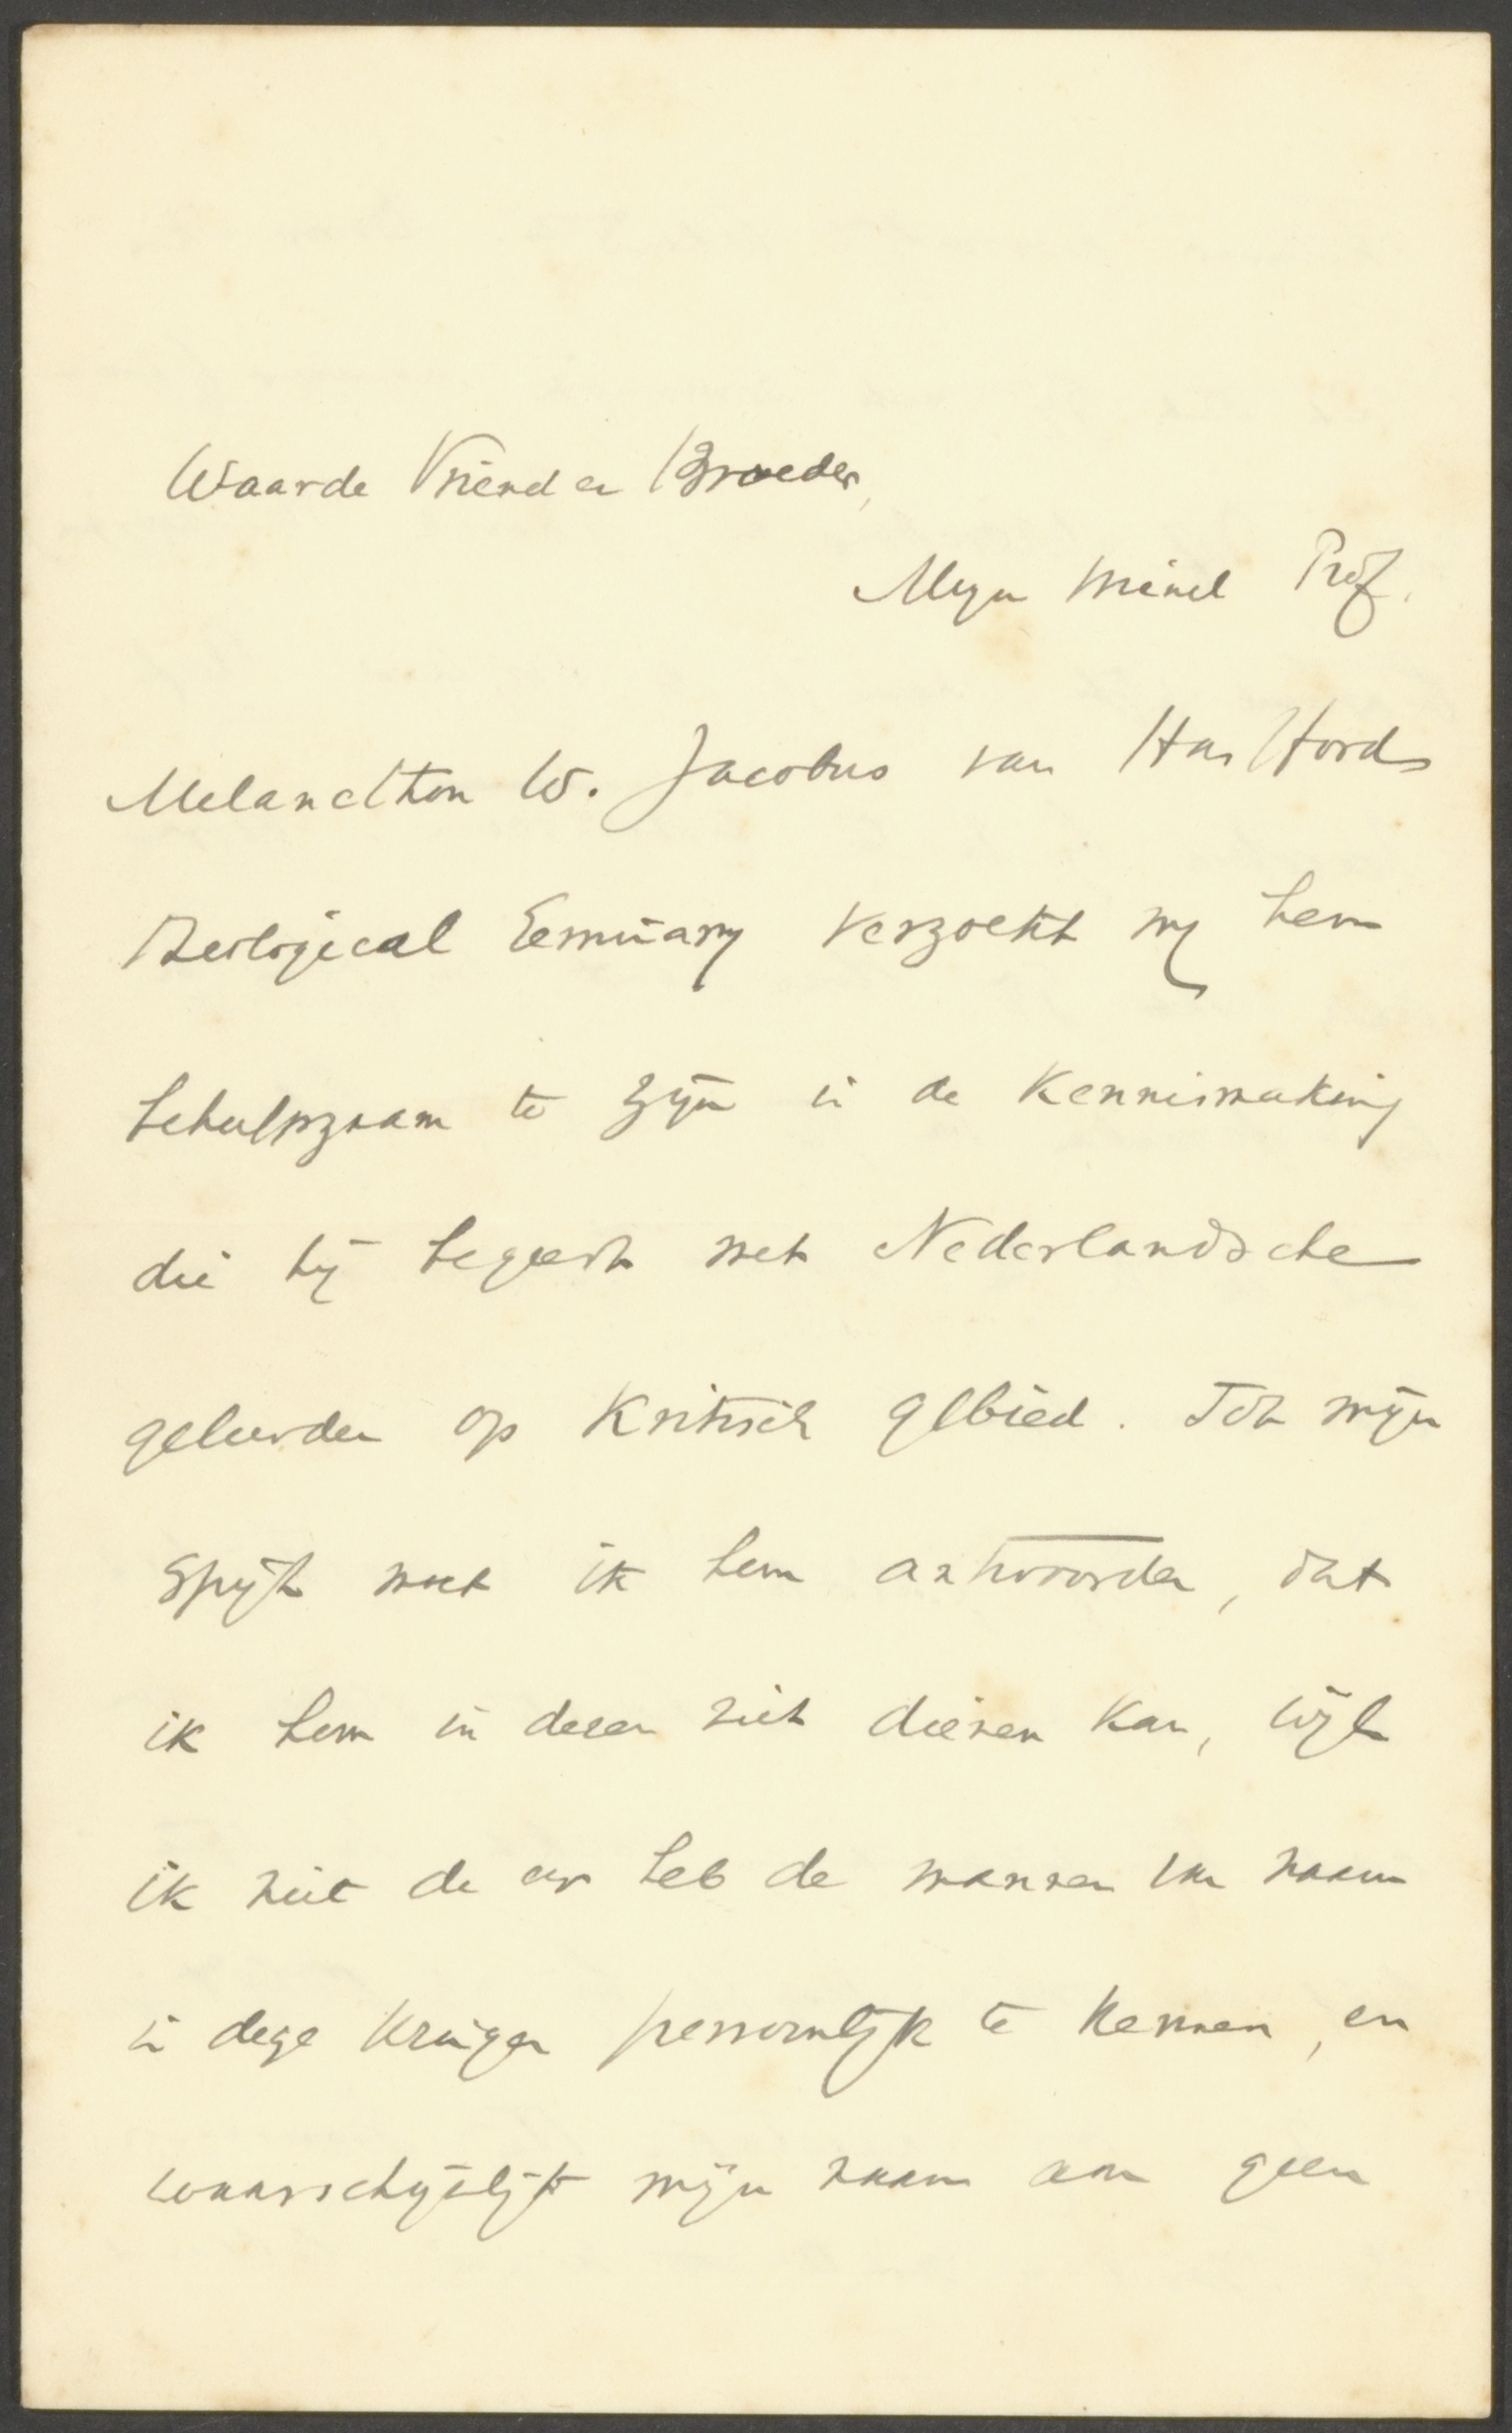 Waarde Vriend en Broeder,
Mijn vriend Prof.
Melancthon W. Jacobus van Hartford
Theological Seminary verzoekt mij hem
behulpzaam te zijn in de kennismaking
die hij begeert met Nederlandsche
geleerden op kritisch gebied. Tot mijn
spijt moet ik hem antwoorden, dat
ik hem in dezen niet dienen kan, wijl
ik niet de eer heb de mannen van naam
in deze kringen persoonlijk te kennen, en
waarschijnlijk mijn naam aan geen